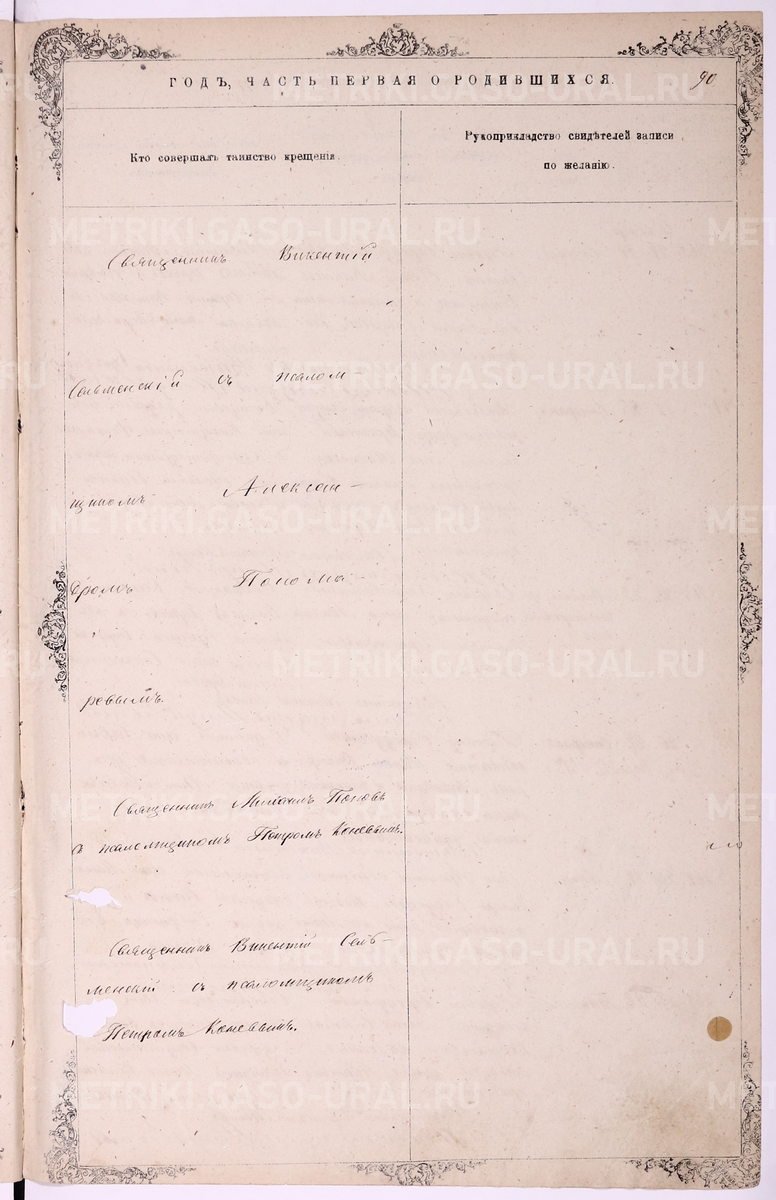 ГОДЪ, ЧАСТЬ ПЕРВАЯ О РОДИВШИХСЯ.
90
Кто совершалъ таинство крещенія.
Рукоприкладство свидѣтелей записи
по желанію.
Священникъ Викентій
Сельменскій съ псалом-
щикомъ Алексан-
дромъ Понома-
ревымъ.
Священникъ Михаилъ Поповъ
съ псаломщикомъ Петромъ Коневымъ.
Священникъ Викентій Сель-
менскій съ псаломщикомъ
Петромъ Коневымъ.
METRIKI.GASO-URAL.RU